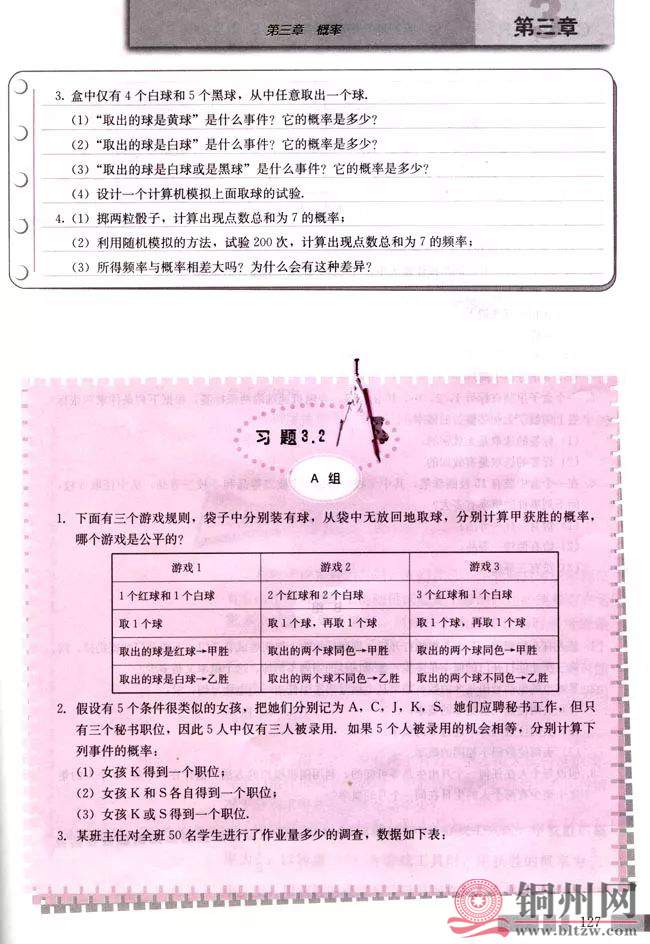 第三章 概率
第三章
3. 盒中仅有 4 个白球和 5 个黑球，从中任意取出一个球.
（1）“取出的球是黄球”是什么事件？它的概率是多少？
（2）“取出的球是白球”是什么事件？它的概率是多少？
（3）“取出的球是白球或是黑球”是什么事件？它的概率是多少？
（4）设计一个计算机模拟上面取球的试验.
4.（1）掷两粒骰子，计算出现点数总和为 7 的概率；
（2）利用随机模拟的方法，试验 200 次，计算出现点数总和为 7 的频率；
（3）所得频率与概率相差大吗？为什么会有这种差异？
习题3.2
A 组
1. 下面有三个游戏规则，袋子中分别装有球，从袋中无放回地取球，分别计算甲获胜的概率，
哪个游戏是公平的？
游戏 1 游戏 2 游戏 3
1 个红球和 1 个白球 2 个红球和 2 个白球 3 个红球和 1 个白球
取 1 个球 取 1 个球，再取 1 个球 取 1 个球，再取 1 个球
取出的球是红球→甲胜 取出的两个球同色→甲胜 取出的两个球同色→甲胜
取出的球是白球→乙胜 取出的两个球不同色→乙胜 取出的两个球不同色→乙胜
2. 假设有 5 个条件很类似的女孩，把她们分别记为 A，C，J，K，S. 她们应聘秘书工作，但只
有三个秘书职位，因此 5 人中仅有三人被录用. 如果 5 个人被录用的机会相等，分别计算下
列事件的概率：
（1）女孩 K 得到一个职位；
（2）女孩 K 和 S 各自得到一个职位；
（3）女孩 K 或 S 得到一个职位.
3. 某班主任对全班 50 名学生进行了作业量多少的调查，数据如下表：
127
铜州网
www.bltzw.com